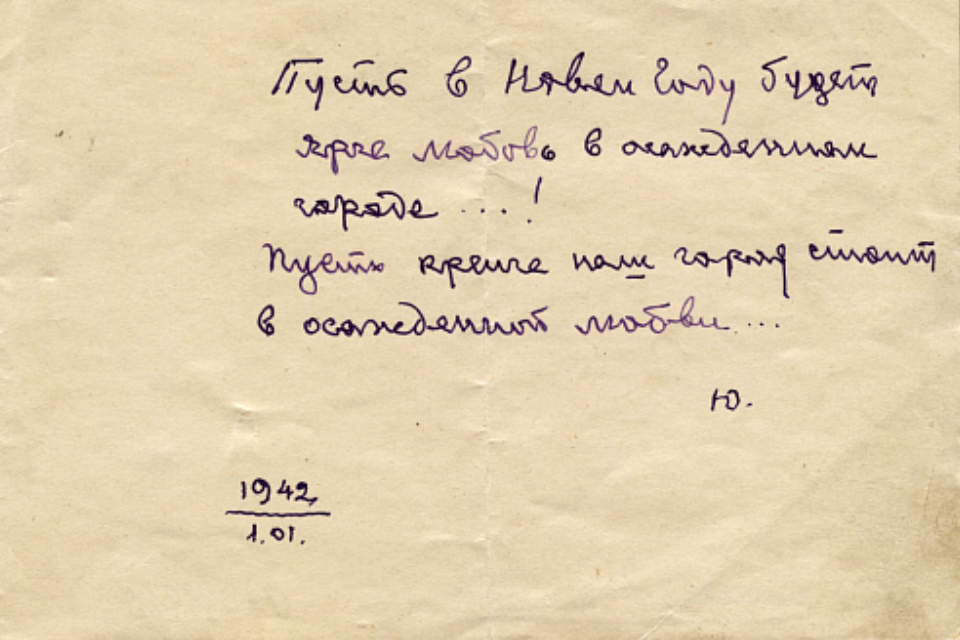 Пусть в Новом Году будет
ярче любовь в осажденном
городе ....!
Пусть крепче наш город стоит
в осажденной любви...
Ю.
1942
1.01.